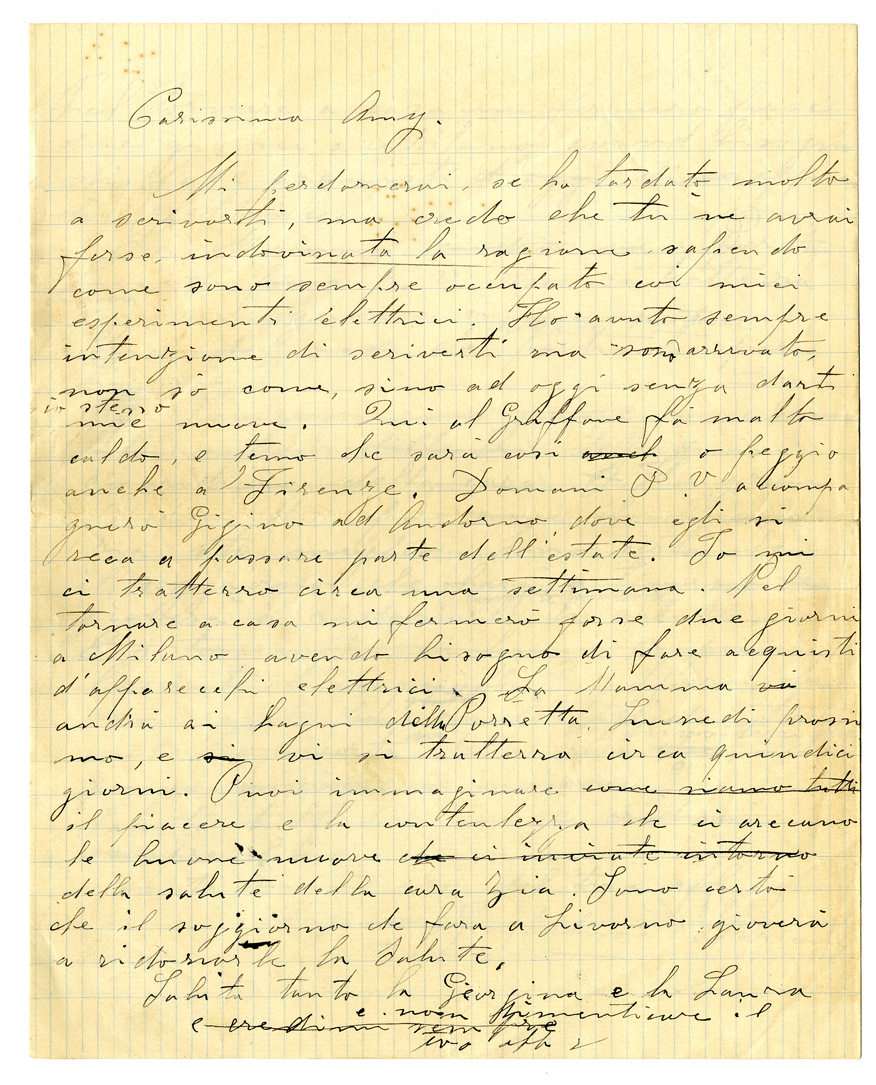 Carissima Amy.
Mi perdonerai, se ho tardato molto
a scriverti, ma credo che tu ne avrai
forse, indovinata la ragione sapendo
come sono sempre occupato coi miei
esperimenti elettrici. Ho avuto sempre
intenzione di scriverti ma sono arrivato,
non so come, sino ad oggi senza darti
io stesso
mie nuove. Qui al Griffone fà molto
caldo, e temo che sarà così o peggio
anche a Firenze. Domani P.V accompa
gnerò Gigino ad Andorno dove egli si
reca a passare parte dell'estate. Io mi
ci tratterrò circa una settimana. Nel
tornare a casa mi fermerò forse due giorni
a Milano avendo bisogno di fare acquisti
d'apparecchi elettrici. La Mamma va
andrà ai bagni della Porretta Lunedì prossi
mo, e si vi si tratterrà circa quindici
giorni. Puoi immaginare come siamo tutti
il piacere e la contentezza che ci arecano
le buone nuove che ci inviate intorno
della salute della cara Zia. Sono certo
che il soggiorno che farà a Livorno gioverà
a ridonarle la Salute.
Saluta tanto la Georgina e la Laura
e non dimenticare il
e credimi sempre
tuo aff